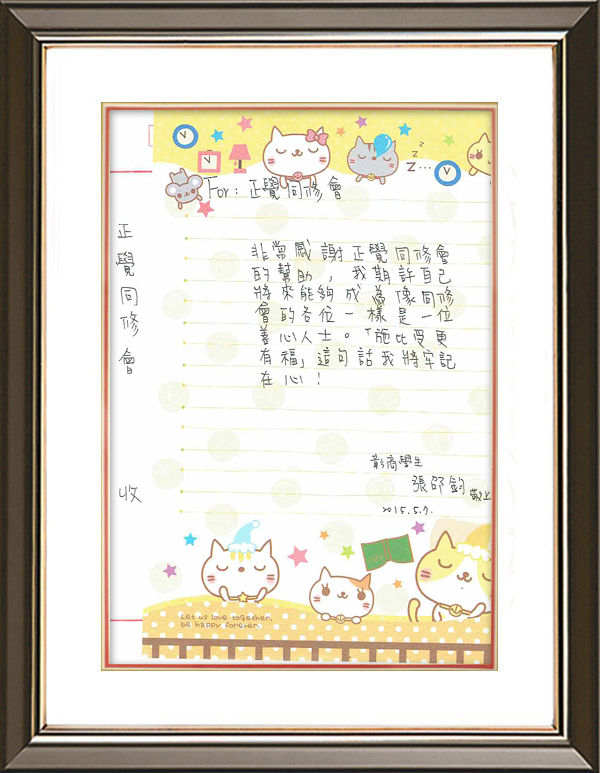 For: 正覺同修會
正覺同修會 收
非常感謝正覺同修會
的幫助，我期許自己
將來能夠成為像同修
會的各位一樣是一位
善心人士。「施比受更
有福」這句話我將牢記
在心！
彰商學生
張邵鈞 敬上
2015.5.7.
Let us love together,
be happy forever.
z z z...